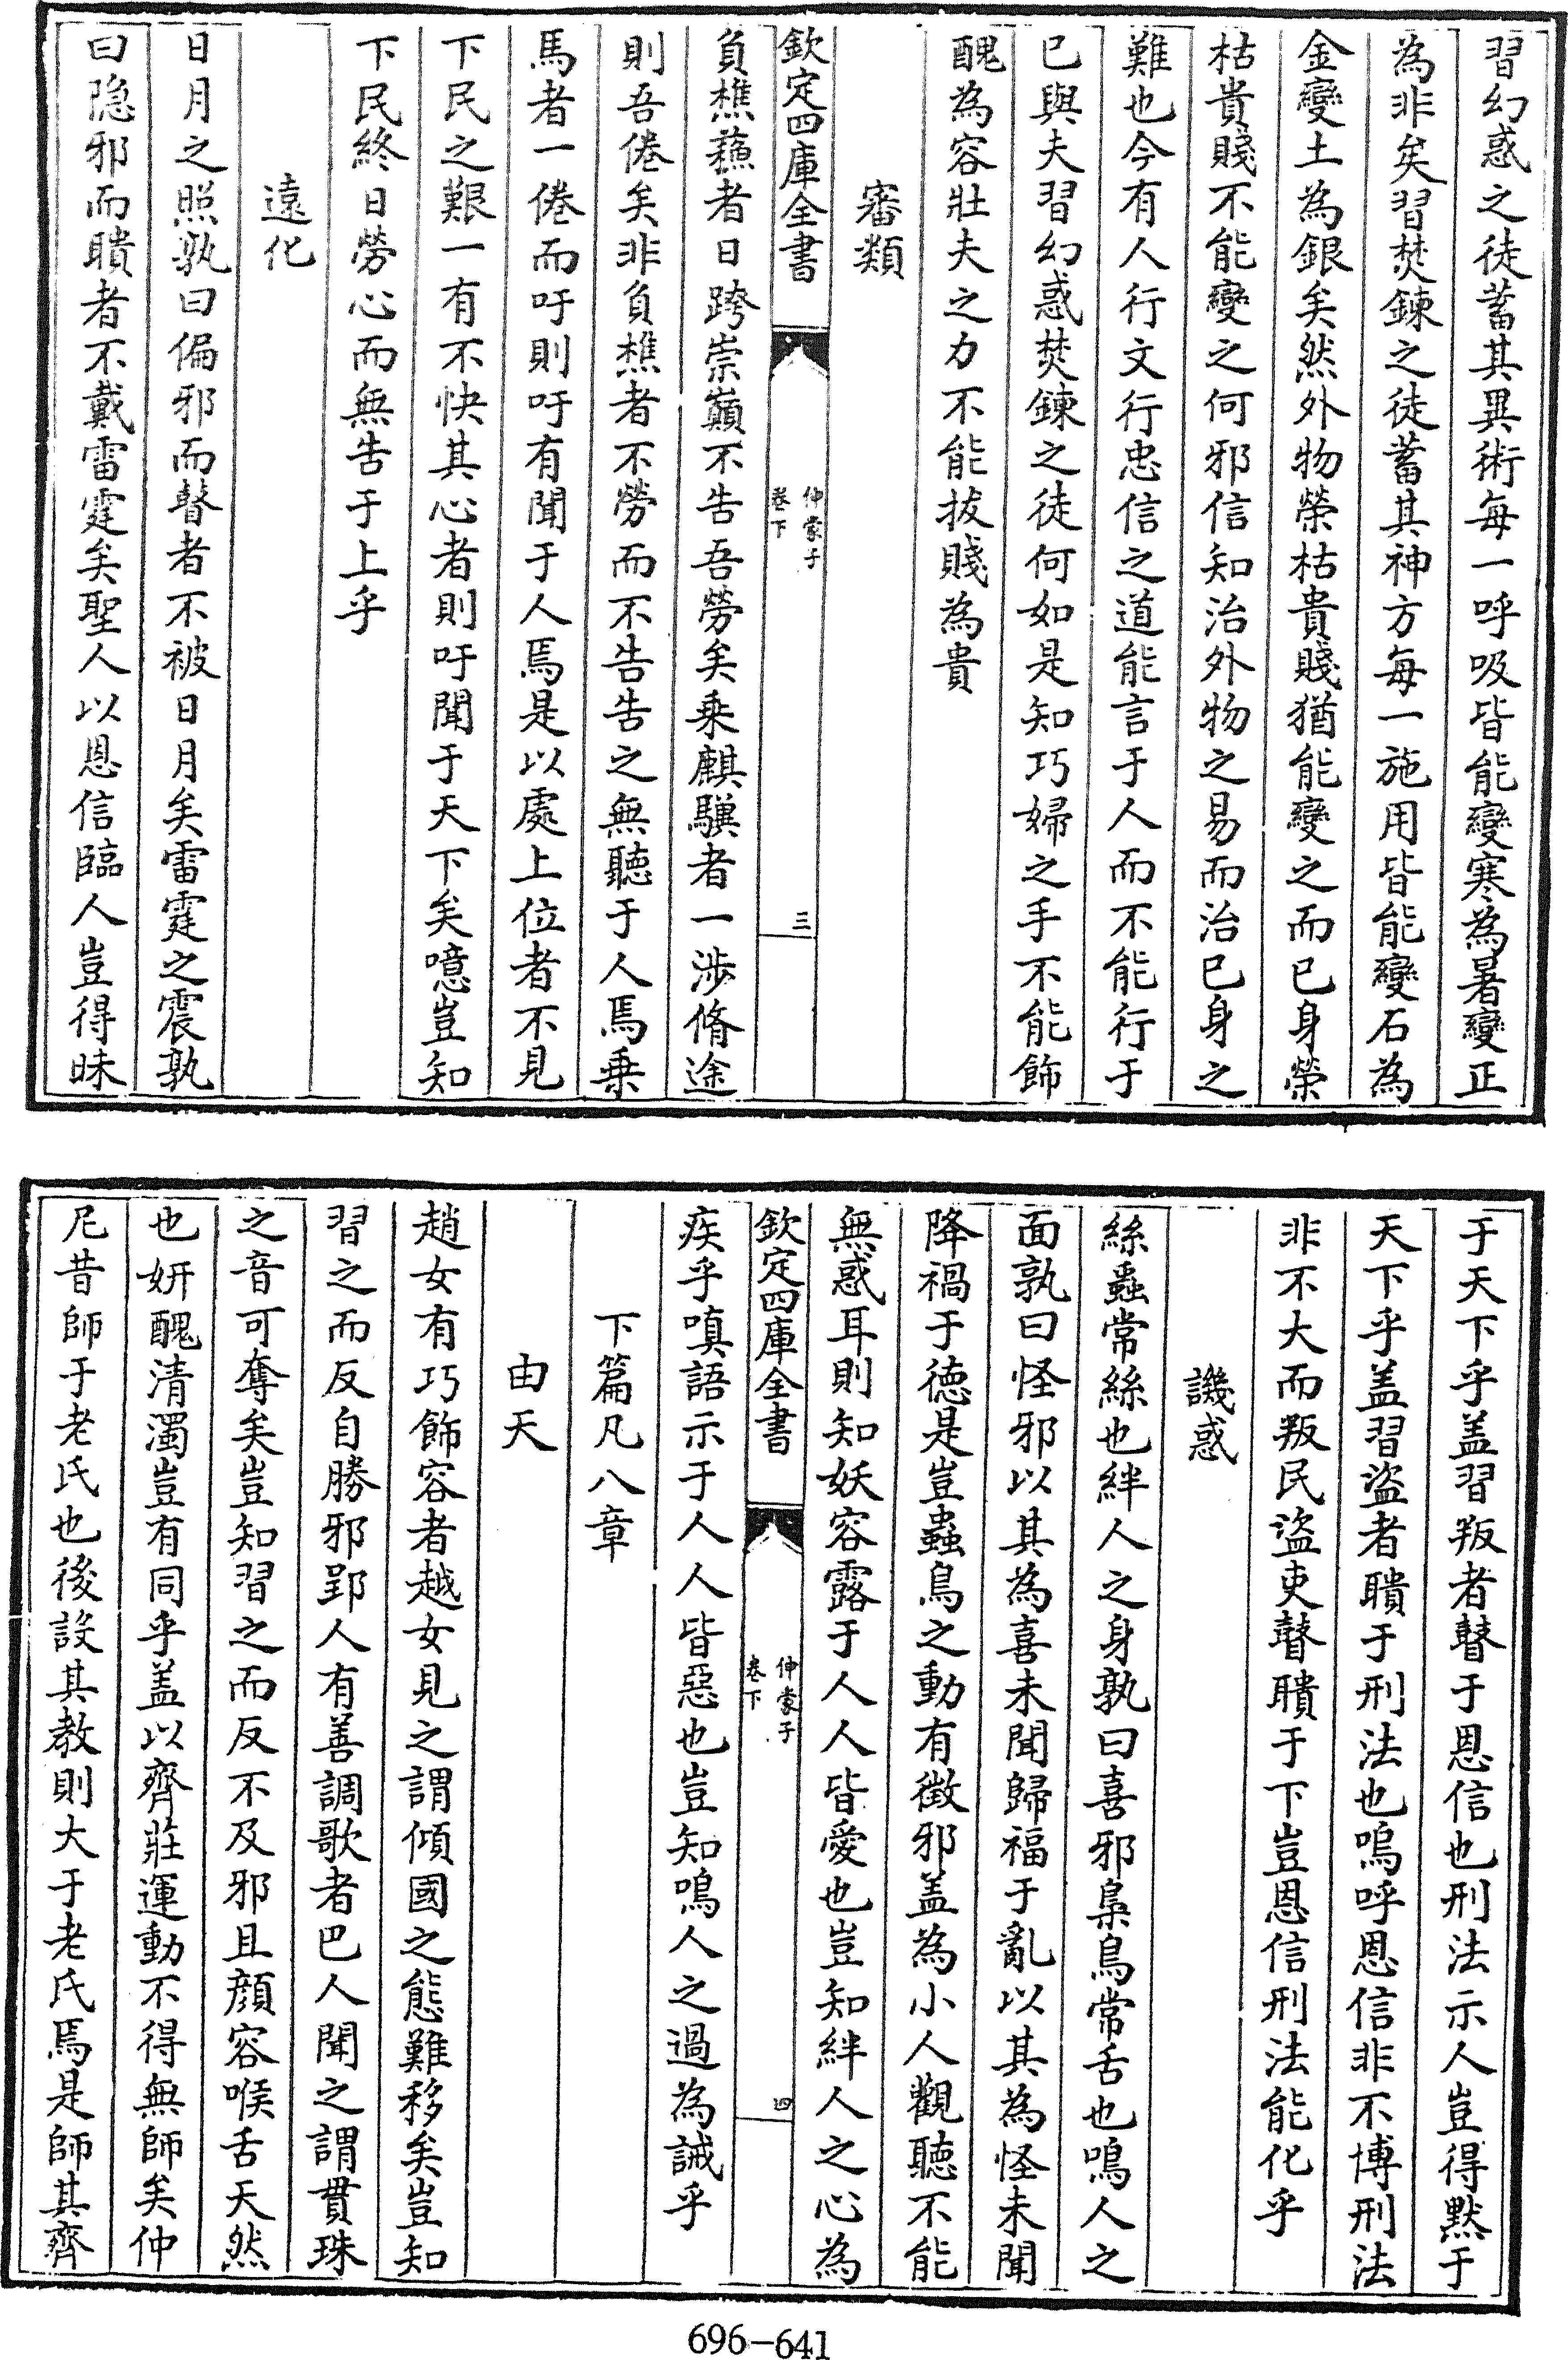 習幻惑之徒蓄其異術每一呼吸皆能變寒為暑變正
為非矣習焚鍊之徒蓄其神方每一施用皆能變石為
金變土為銀矣然外物榮枯貴賤猶能變之而已身榮
枯貴賤不能變之何邪信知治外物之易而治已身之
難也今有人行文行忠信之道能言于人而不能行于
已與夫習幻惑焚鍊之徒何如是知巧婦之手不能飾
醜為容壯夫之力不能拔賤為貴
審類
欽定四庫全書
仲蒙子
卷下
三
負樵蘓者日跨崇巔不告吾勞矣乗麒驥者一涉脩途
則吾倦矣非負樵者不勞而不告告之無聽于人焉乗
馬者一倦而吁則吁有聞于人焉是以處上位者不見
下民之艱一有不快其心者則吁聞于天下矣噫豈知
下民終日勞心而無告于上乎
遠化
日月之照孰曰偏邪而瞽者不被日月矣雷霆之震孰
曰隐邪而聵者不戴雷霆矣聖人以恩信臨人豈得昧
于天下乎盖習叛者瞽于恩信也刑法示人豈得黙于
天下乎盖習盜者聵于刑法也嗚呼恩信非不博刑法
非不大而叛民盜吏瞽聵于下豈恩信刑法能化乎
譏惑
絲蟲常絲也絆人之身孰曰喜邪梟鳥常舌也鳴人之
面孰曰怪邪以其為喜未聞歸福于亂以其為怪未聞
降禍于徳是豈蟲鳥之動有徴邪盖為小人觀聽不能
無惑耳則知妖容露于人人皆愛也豈知絆人之心為
欽定四庫全書
仲蒙子
卷下
四
疾乎嗔語示于人人皆惡也豈知鳴人之過為誡乎
下篇凡八章
由天
趙女有巧飾容者越女見之謂傾國之態難移矣豈知
習之而反自勝邪郢人有善調歌者巴人聞之謂貫珠
之音可奪矣豈知習之而反不及邪且顔容喉舌天然
也妍醜清濁豈有同乎盖以齊莊運動不得無師矣仲
尼昔師于老氏也後設其教則大于老氏焉是師其齊
696-641